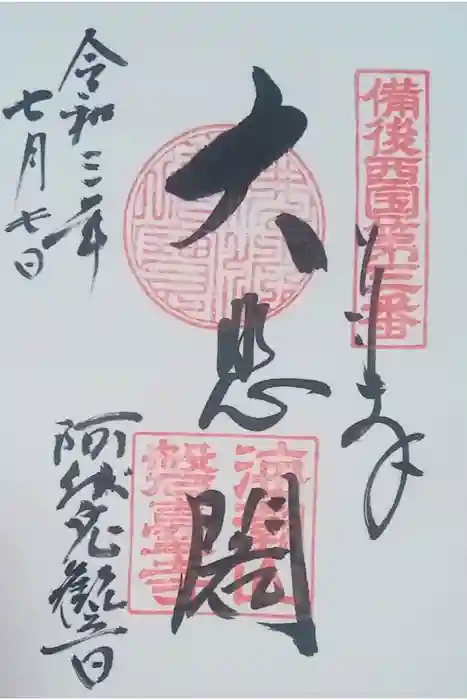 備後西国第三番
奉拝
大悲閣
磐臺寺
令和三年
七月七日
阿伏兎観音